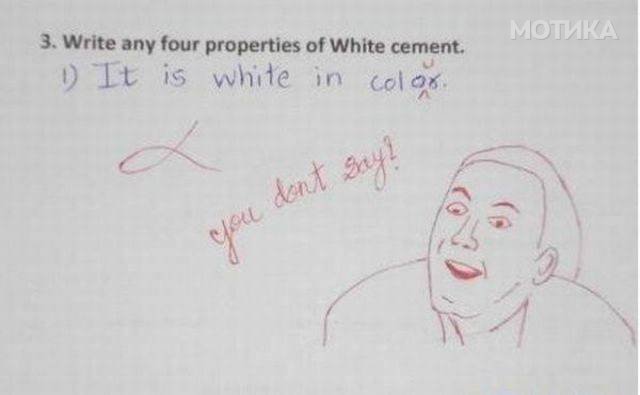 МОТИКА
3. Write any four properties of White cement.
u
1) It is white in color.
you don't say?